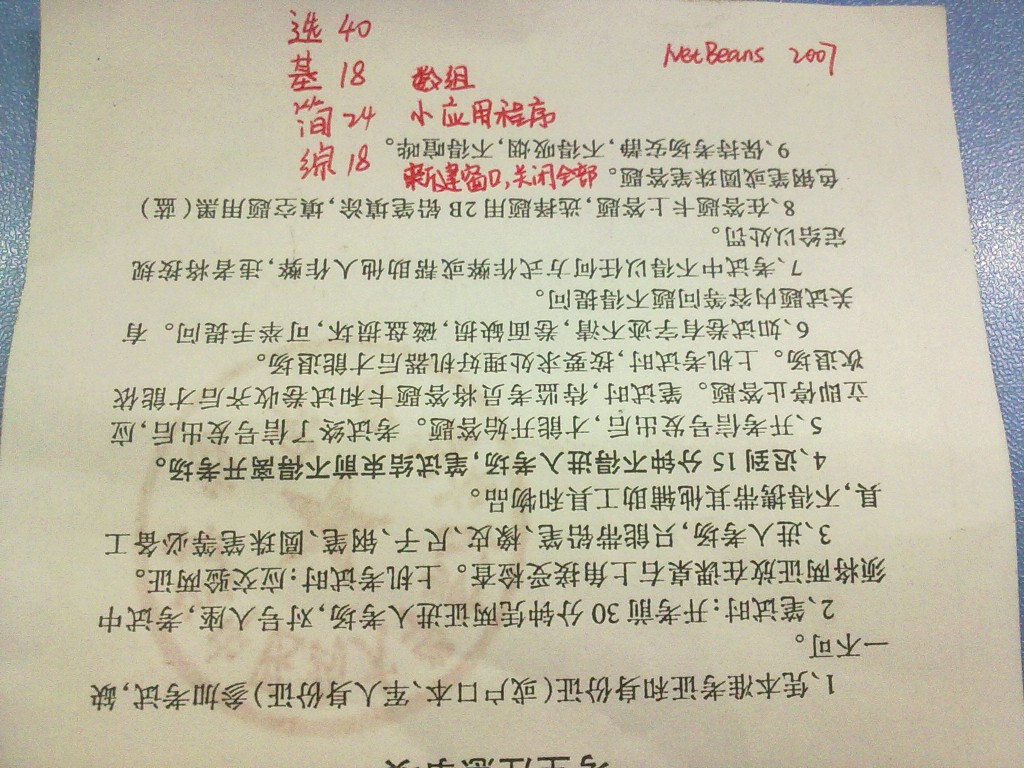 选 40
基 18 数组
简 24 小应用程序
综 18 新建窗口,关闭全部
NetBeans 2007
1、凭本准考证和身份证(或户口本、军人身份证)参加考试,缺
一不可。
2、笔试时:开考前 30 分钟凭两证进入考场,对号入座,考试中
须将两证放在课桌右上角接受检查。上机考试时:应交验两证。
3、进入考场,只能带铅笔、橡皮、尺子、钢笔、圆珠笔等必备工
具,不得携带其他辅助工具和物品。
4、迟到 15 分钟不得进入考场,笔试结束前不得离开考场。
5、开考信号发出后,才能开始答题。考试终了信号发出后,应
立即停止答题。笔试时,待监考员将答题卡和试卷收齐后才能依
次退场。上机考试时,按要求处理好机器后才能退场。
6、如试卷有字迹不清,卷面缺损,磁盘损坏,可举手提问。有
关试题内容等问题不得提问。
7、考试中不得以任何方式作弊或帮助他人作弊,违者将按规
定给以处罚。
8、在答题卡上答题,选择题用 2B 铅笔填涂,填空题用黑(蓝)
色钢笔或圆珠笔答题。
9、保持考场安静,不得吸烟,不得喧哗。